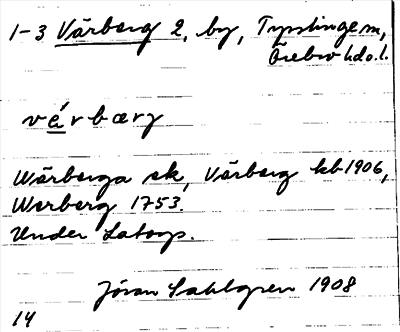 1-3 Vårberg 2, by, Tysslinge sn,
Örebro hd o. l.
vǻrbærg
Wårberga ek, Vårberg kb 1906,
Warberg 1753.
Under Latorp.
Jöran Sahlgren 1908
14